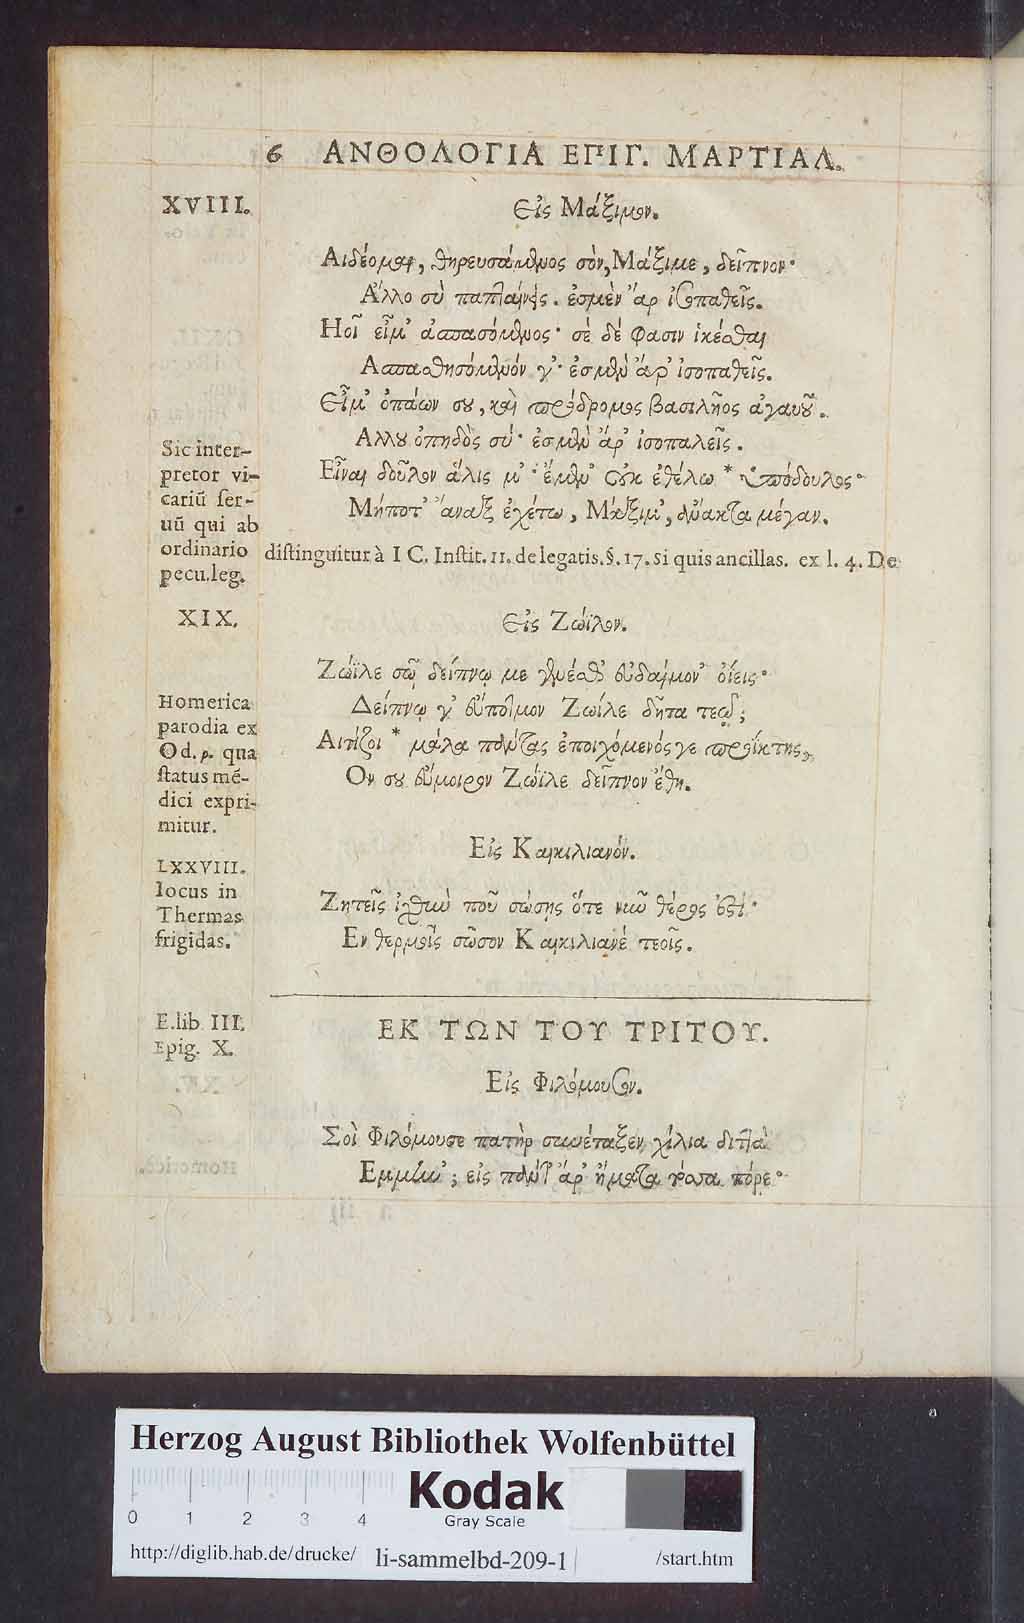 6 ΑΝΘΟΛΟΓΙΑ ΕΠΙΓ. ΜΑΡΤΙΑΛ.
XVIII.
Εἰς Μάξιμον.
Αιδέομαι, θηρευσάμενος σὸν, Μάξιμε, δεῖπνον·
Ἄλλο σὺ παπταίνεις. ἐσμὲν ἄρ ἰσοπαθεῖς.
Ηοῖ εἶμ' ἀσπασόμενος· σὲ δέ φασιν ἱκέσθαι
Ασπασθησόμενόν γ'· ἐσμὲν ἄρ' ἰσοπαθεῖς.
Εἶμ' ὀπάων σου, καὶ πρόδρομος βασιλῆος ἀγαυοῦ.
Αλλου ὀπηδὸς σύ· ἐσμὲν ἄρ' ἰσοπαλεῖς.
Εἶναι δοῦλον ἅλις μ'· ἔμεν' οὐκ ἐθέλω * ὑπόδουλος·
Μήποτ' ἄναξ ἐχέτω, Μάξιμ', ἄνακτα μέγαν.
Sic inter-
pretor vi-
cariũ ser-
uũ qui ab
ordinario distinguitur à I C. Instit. 11. de legatis. §. 17. Si quis ancillas. ex l. 4. De
pecu. leg.
XIX.
Εἰς Ζώϊλον.
Ζώϊλε σῷ δείπνῳ με γενέσθ' εὐδαίμον' ὀίεις·
Δείπνῳ γ' εὔποτμον Ζωίλε δῆτα τεῷ;
Αιτίζοι * μάλα πάντας ἐποιχόμενός γε προΐκτης,
Ον σου εὔμοιρον Ζώϊλε δεῖπνον ἔθη.
Homerica
parodia ex
Od. ρ. qua
status mẽ-
dici expri-
mitur.
Εἰς Καικιλιανόν.
LXXVIII.
locus in
Thermas
frigidas.
Ζητεῖς ἰχθὺν ποῦ σώσῃς ὅτε νῦν θέρος ἐστί·
Εν θερμαῖς σῶσον Καικιλιανέ τεοῖς.
E. lib III.
Epig. X.
ΕΚ ΤΩΝ ΤΟΥ ΤΡΙΤΟΥ.
Εἰς Φιλόμουσον.
Σοὶ Φιλόμουσε πατὴρ συνέταξεν χίλια διττὰ
Εμμην'; εἰς πάντ' ἄρ' ἤματα πόρε·
Herzog August Bibliothek Wolfenbüttel
Kodak
Gray Scale
0 1 2 3 4
http://diglib.hab.de/drucke/ li-sammelbd-209-1 /start.htm